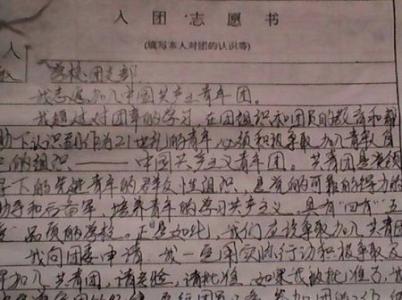 入团志愿书
(填写本人对团的认识等)
入
学校团支部
我志愿加入中国共产主义青年团。
我通过对团章的学习,在团组织和团员的教育和帮
助下认识到作为21世纪的青年,必须积极争取加入青年自
己的组织——中国共产主义青年团。共青团是党领
导下的先进青年的群众性组织,是党的可靠的得力的
助手和后备军,培养青年的学习共产主义,具有“四有”五
品质的学校。正是如此,我们应该争取加入共青团
我向团委申请:我一定用实际行动积极争取及
早加入共青团,请考验,请批准。如果我被批准了,我